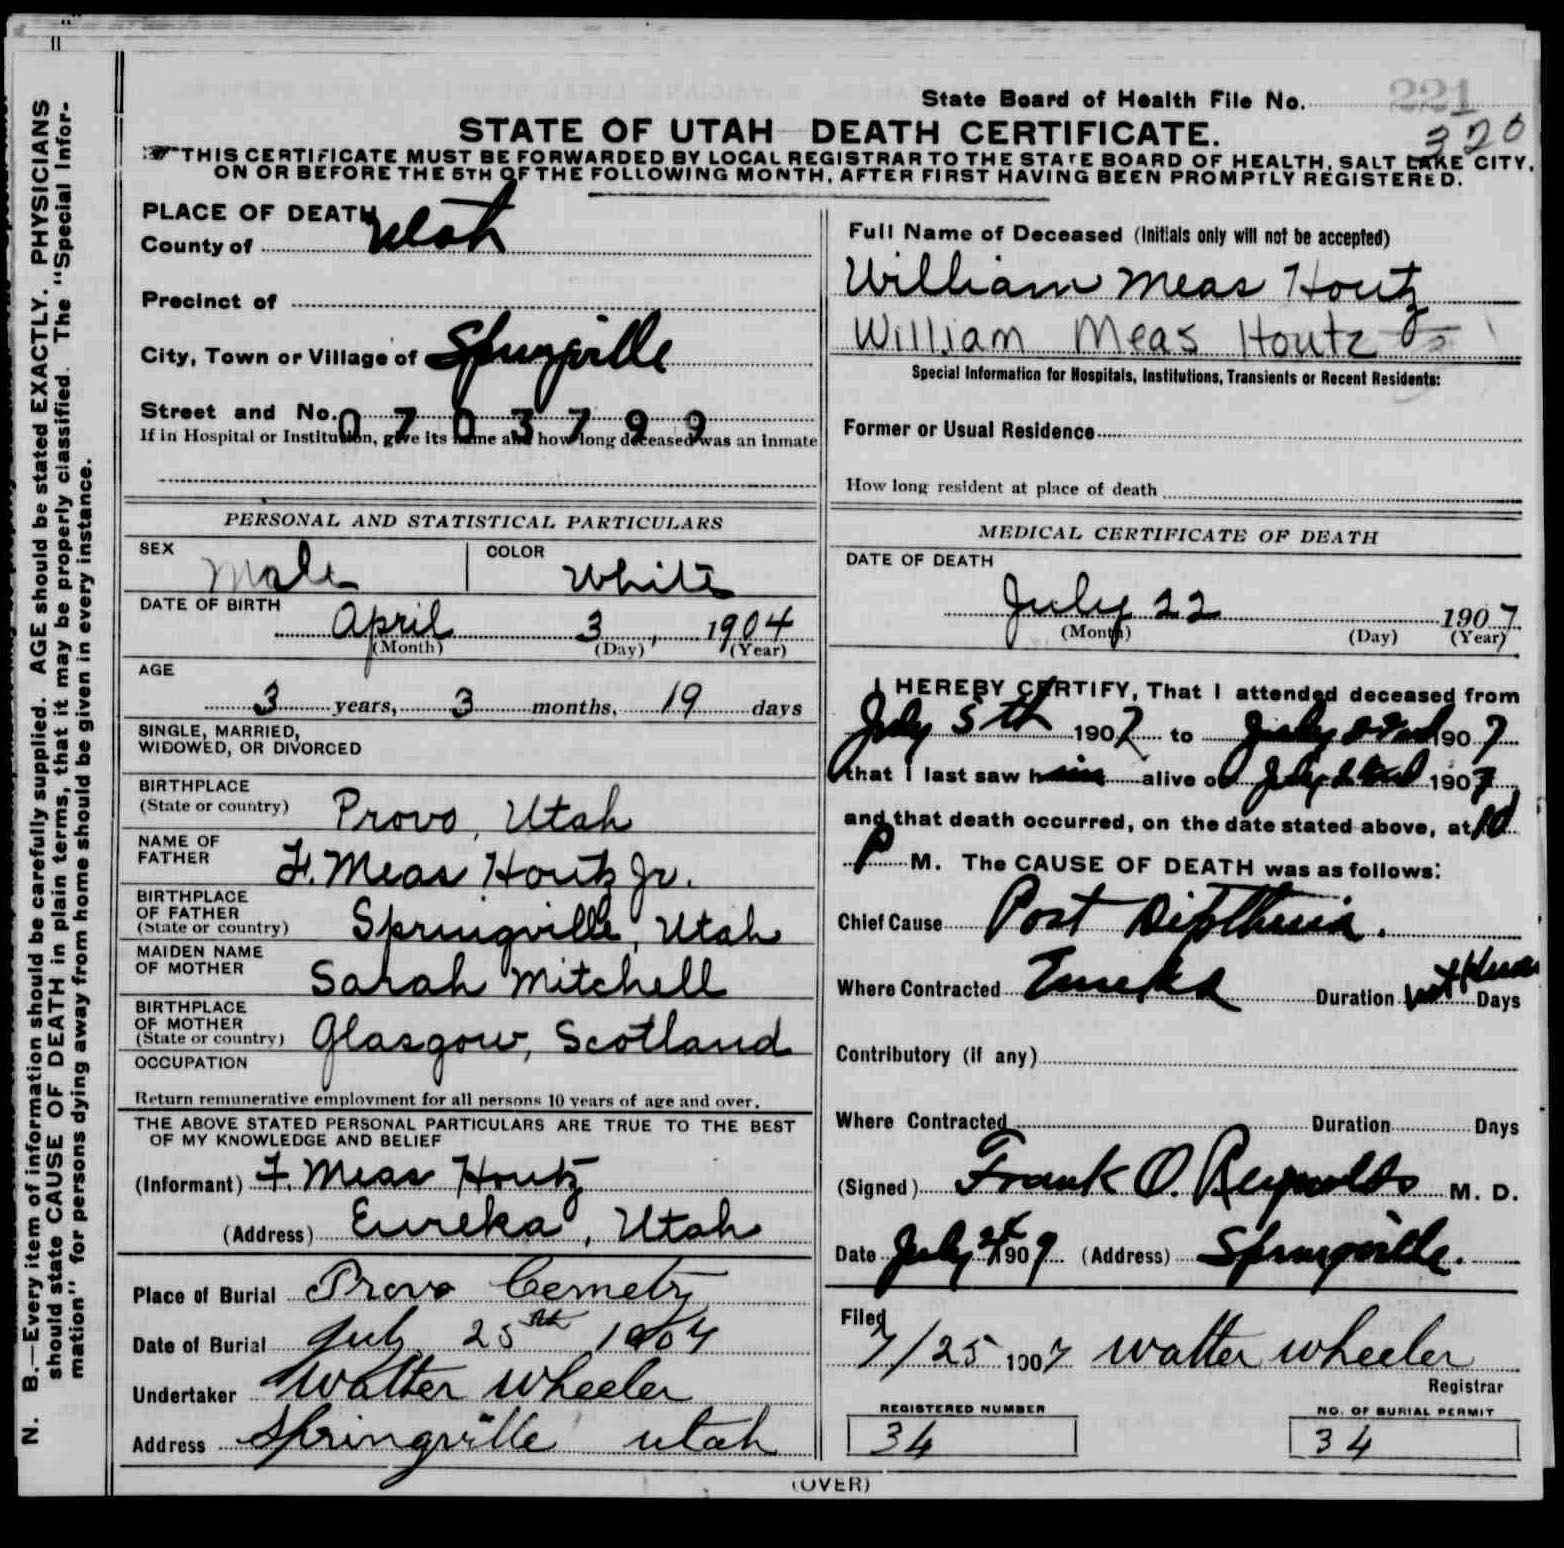 N. B.—Every item of information should be carefully supplied. AGE should be stated EXACTLY. PHYSICIANS
should state CAUSE OF DEATH in plain terms, that it may be properly classified. The "Special Infor-
mation" for persons dying away from home should be given in every instance.
State Board of Health File No. 221
320
STATE OF UTAH DEATH CERTIFICATE.
THIS CERTIFICATE MUST BE FORWARDED BY LOCAL REGISTRAR TO THE STATE BOARD OF HEALTH, SALT LAKE CITY,
ON OR BEFORE THE 5TH OF THE FOLLOWING MONTH, AFTER FIRST HAVING BEEN PROMPTLY REGISTERED.
PLACE OF DEATH
County of Utah
Precinct of
City, Town or Village of Springville
Street and No.
0703799
If in Hospital or Institution, give its name and how long deceased was an inmate
Full Name of Deceased (Initials only will not be accepted)
William Meas Houtz
William Meas Houtz
Special Information for Hospitals, Institutions, Transients or Recent Residents:
Former or Usual Residence
How long resident at place of death
PERSONAL AND STATISTICAL PARTICULARS
SEX Male COLOR White
DATE OF BIRTH
April 3, 1904
(Month) (Day) (Year)
AGE
3 years, 3 months, 19 days
SINGLE, MARRIED,
WIDOWED, OR DIVORCED
BIRTHPLACE
(State or country) Provo, Utah
NAME OF
FATHER F. Meas Houtz Jr.
BIRTHPLACE
OF FATHER
(State or country) Springville, Utah
MAIDEN NAME
OF MOTHER Sarah Mitchell
BIRTHPLACE
OF MOTHER
(State or country) Glasgow, Scotland
OCCUPATION
Return remunerative employment for all persons 10 years of age and over.
THE ABOVE STATED PERSONAL PARTICULARS ARE TRUE TO THE BEST
OF MY KNOWLEDGE AND BELIEF
(Informant) F. Meas Houtz
(Address) Eureka, Utah
Place of Burial Provo Cemetry
Date of Burial July 25th 1907
Undertaker Walter Wheeler
Address Springville Utah
MEDICAL CERTIFICATE OF DEATH
DATE OF DEATH
July 22 1907
(Month) (Day) (Year)
I HEREBY CERTIFY, That I attended deceased from
July 5th 1907 to July 22nd 1907
that I last saw him alive on July 22nd 1907
and that death occurred, on the date stated above, at 10
P M. The CAUSE OF DEATH was as follows:
Chief Cause Post Diptheria.
Where Contracted Eureka Duration Days
Contributory (if any)
Where Contracted Duration Days
(Signed) Frank O. Reynolds M. D.
Date July 24 1907 (Address) Springville.
Filed
7/25 1907 Walter Wheeler
Registrar
REGISTERED NUMBER
34
NO. OF BURIAL PERMIT
34
(OVER)